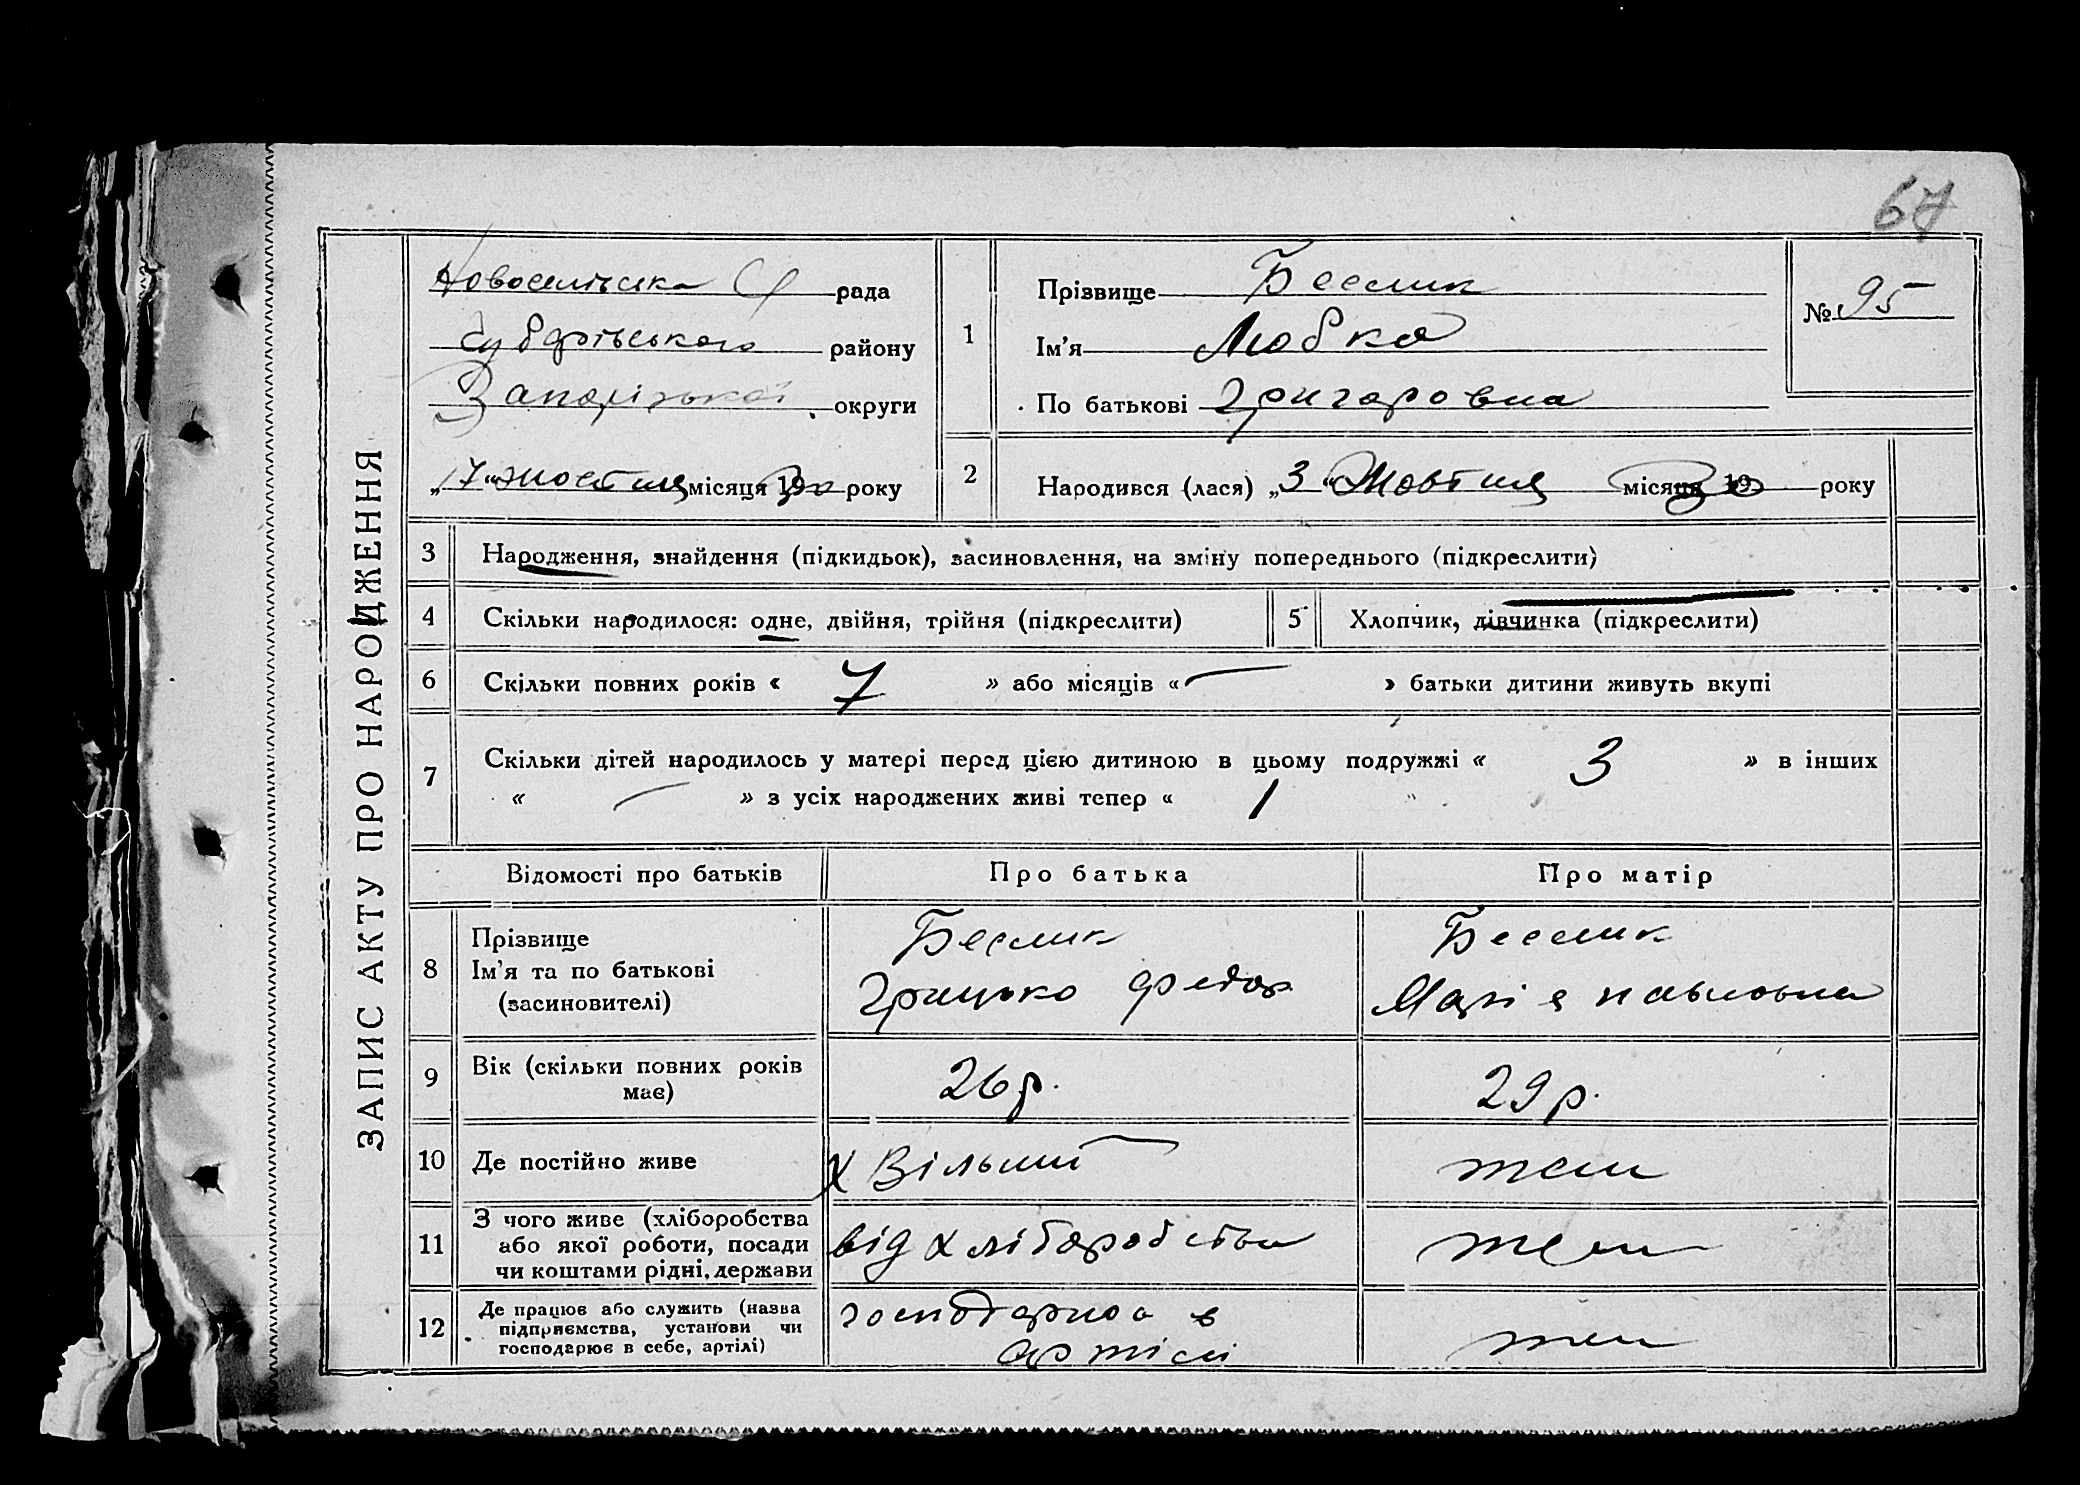 67
ЗАПИС АКТУ ПРО НАРОДЖЕННЯ
Новосельська С/ рада
району
Запорізької округи
„17“ жовтня місяця 1930 року
1
Прізвище Беслик
Ім'я Любка
По батькові Григоровна
№ 95
2
Народився (лася) „3“ Жовтня місяця 1930 року
3 Народження, знайдення (підкидьок), засиновлення, на зміну попереднього (підкреслити)
4 Скільки народилося: одне, двійня, трійня (підкреслити)
5 Хлопчик, дівчинка (підкреслити)
6 Скільки повних років « 7 » або місяців « — » батьки дитини живуть вкупі
7 Скільки дітей народилось у матері перед цією дитиною в цьому подружжі « 3 » в інших
« — » з усіх народжених живі тепер « 1 "
Відомості про батьків Про батька Про матір
8 Прізвище
Ім'я та по батькові
(засиновителі)
Беслик
Грицько Федор
Беслик
Марія Павловна
9 Вік (скільки повних років
має)
26 р.
29 р.
10 Де постійно живе
х Вільний
теж
11 З чого живе (хліборобства
або якої роботи, посади
чи коштами рідні, держави
від хліборобства
теж
12 Де працює або служить (назва
підприємства, установи чи
господарює в себе, артілі)
в
артілі
теж